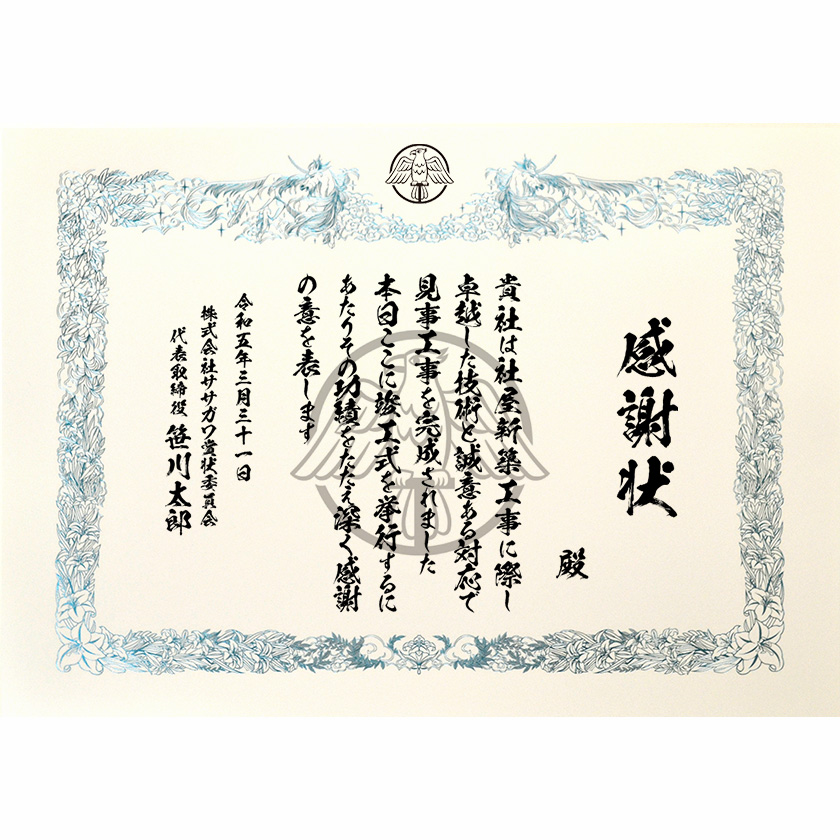 感謝状
殿
貴社は社屋新築工事に際し
卓越した技術と誠意ある対応で
見事工事を完成されました
本日ここに竣工式を挙行するに
あたりその功績をたたえ深く感謝
の意を表します
令和五年三月三十一日
株式会社ササガワ賞状委員会
代表取締役 笹川太郎